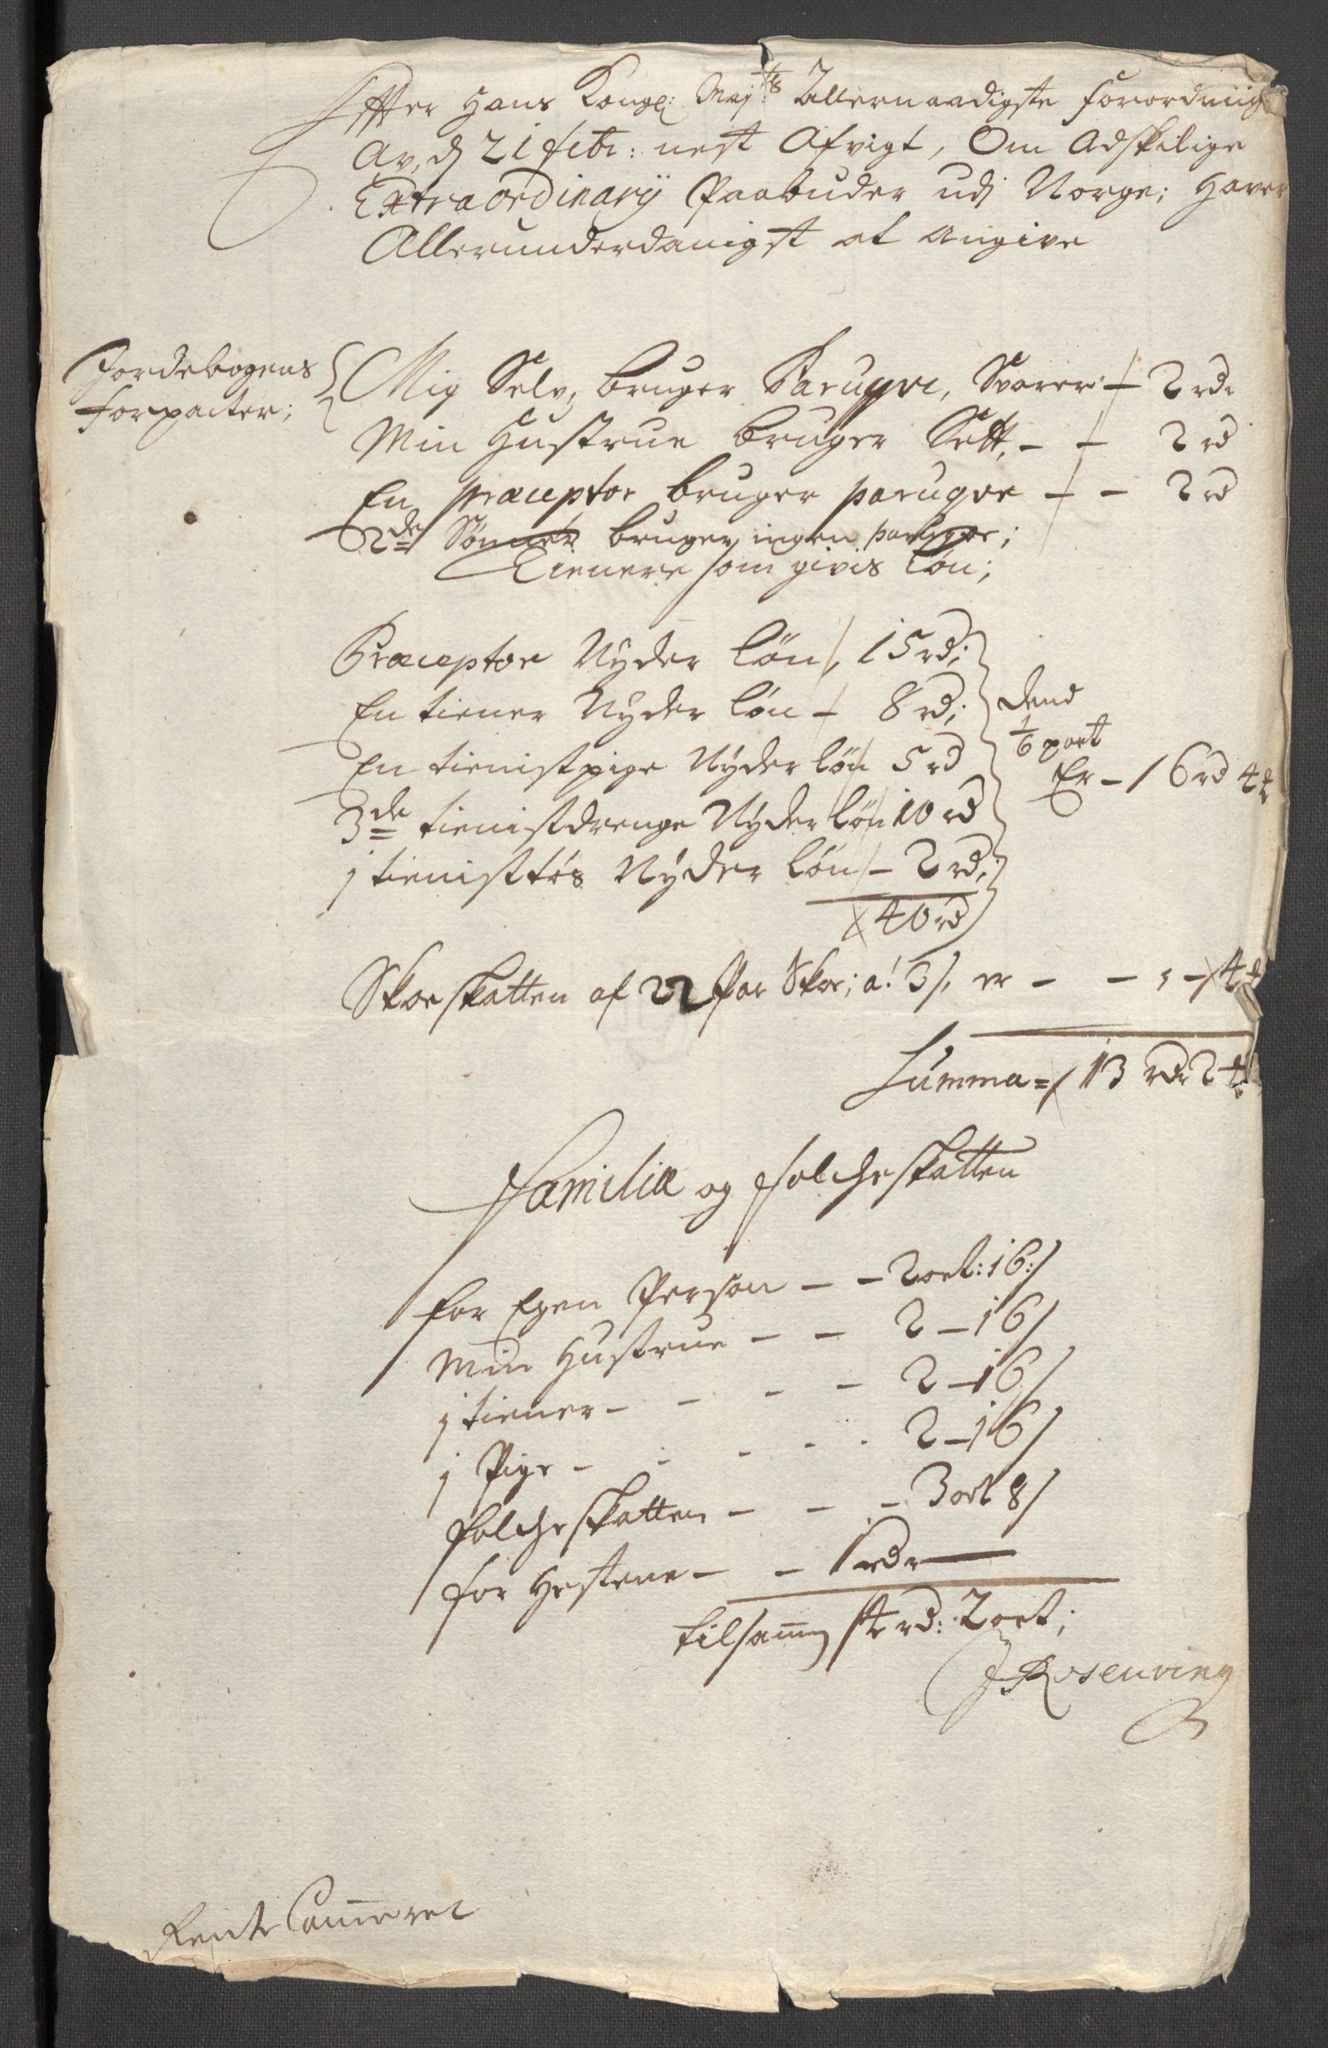 Effter Hans Kongl: Maj:ts Allernaadigste forordning
Av, d 21 febr: nest Afvigt, Om Adskilige
Extraordinarij Paabuder udj Norge; Haver
Allerunderdanigst at Angive
Jordebogens
forpacter;
Mig Selv, bruger Paruqve, Svarer - 2 rdr
Min Hustrue bruger Sett, - - 2 rd
En præceptor bruger paruqve - - 2 rd
2de Sønner bruger ingen paruqve;
Tienere som givis løn;
Præceptor Nyder løn, 15 rd;
En tiener Nyder løn - 8 rd;
En tienistpige Nyder løn 5 rd
3de tienistdrenge Nyder løn 10 rd
j tienisttøs Nyder løn - 2 rd;
40 rd
dend
1/6 part
Er - 6 rd 4
Skoeskatten af 22 Par Skoe; a! 3 /, er - - - 4
Summa = 13 rdr 2
Familiæ og folcheskatten
for Egen Person - - 2 ort: 16:/
Min Hustrue - - 2 - 16 /
j tiener - - - - 2 - 16 /
j Pige - - - - - 2 - 16 /
folcheskatten - - - 3 ort 8 /
for Hestene - - 1 rdr
tilsamen rd: 2 ort;
J Rosenving
Rente Cammeret